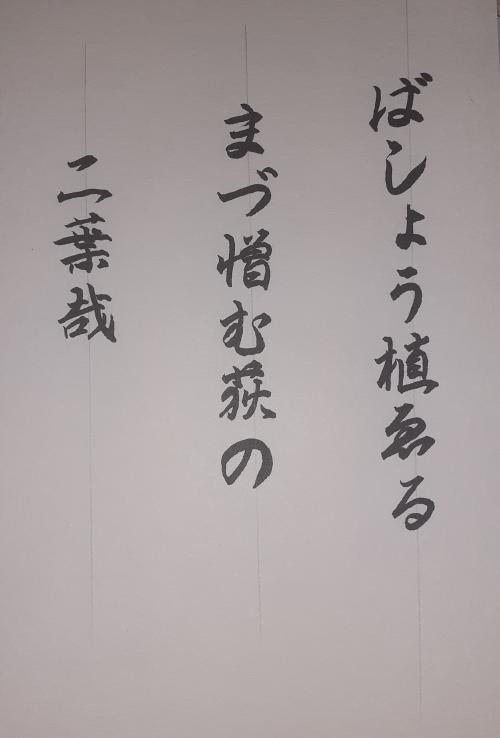 ばしょう植ゑる
まづ憎む荻の
二葉哉